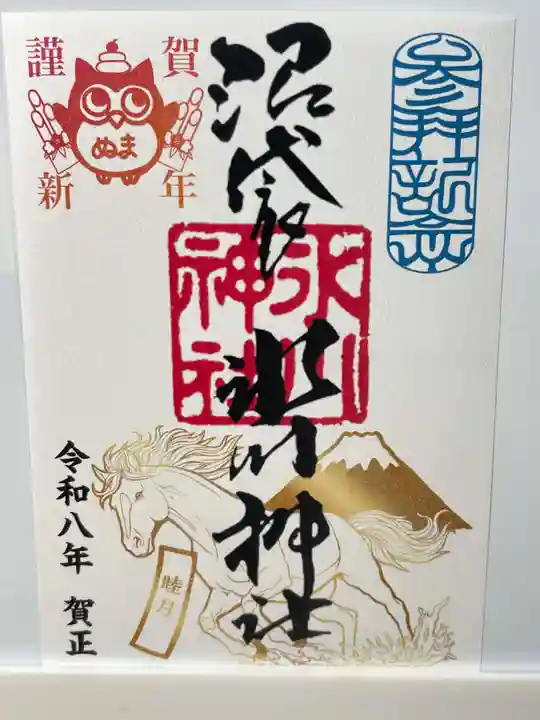 参拝記念
沼袋氷川神社
氷川
神社
謹賀新年
ぬま
睦月
令和八年 賀正